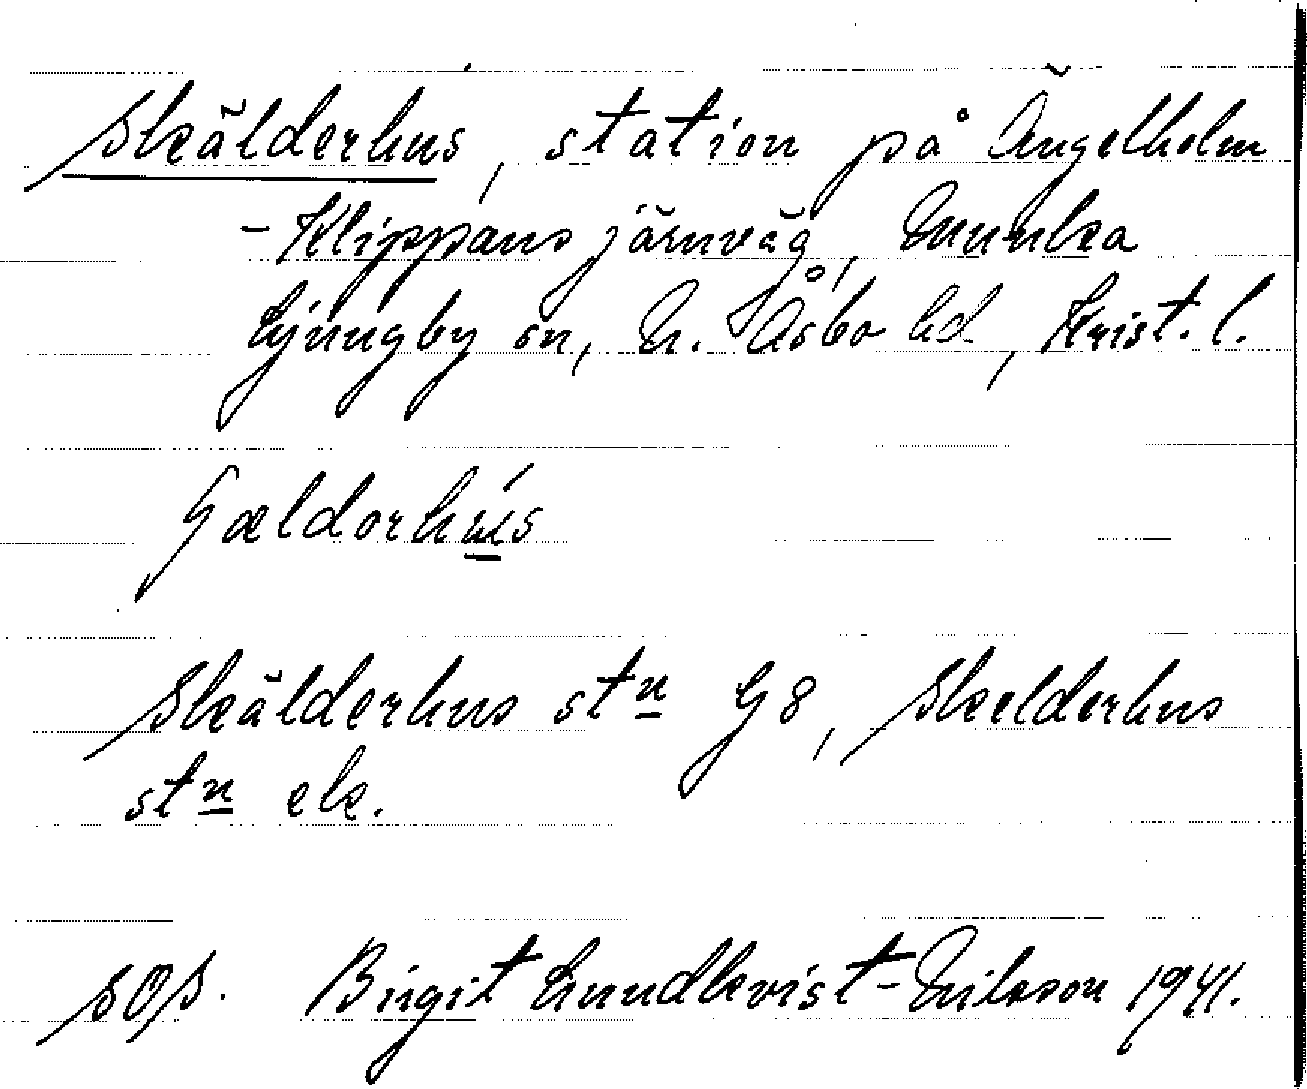 Skälderhus, station på Ängelholm
-Klippans järnväg, Munka
Ljungby sn, N. Åsbo hd, Krist. l.
ʃældorhú̲s
Skälderhus stn G8, Skelderhus
stn ek.
SOS. Birgit Lundkvist-Nilsson 1941.